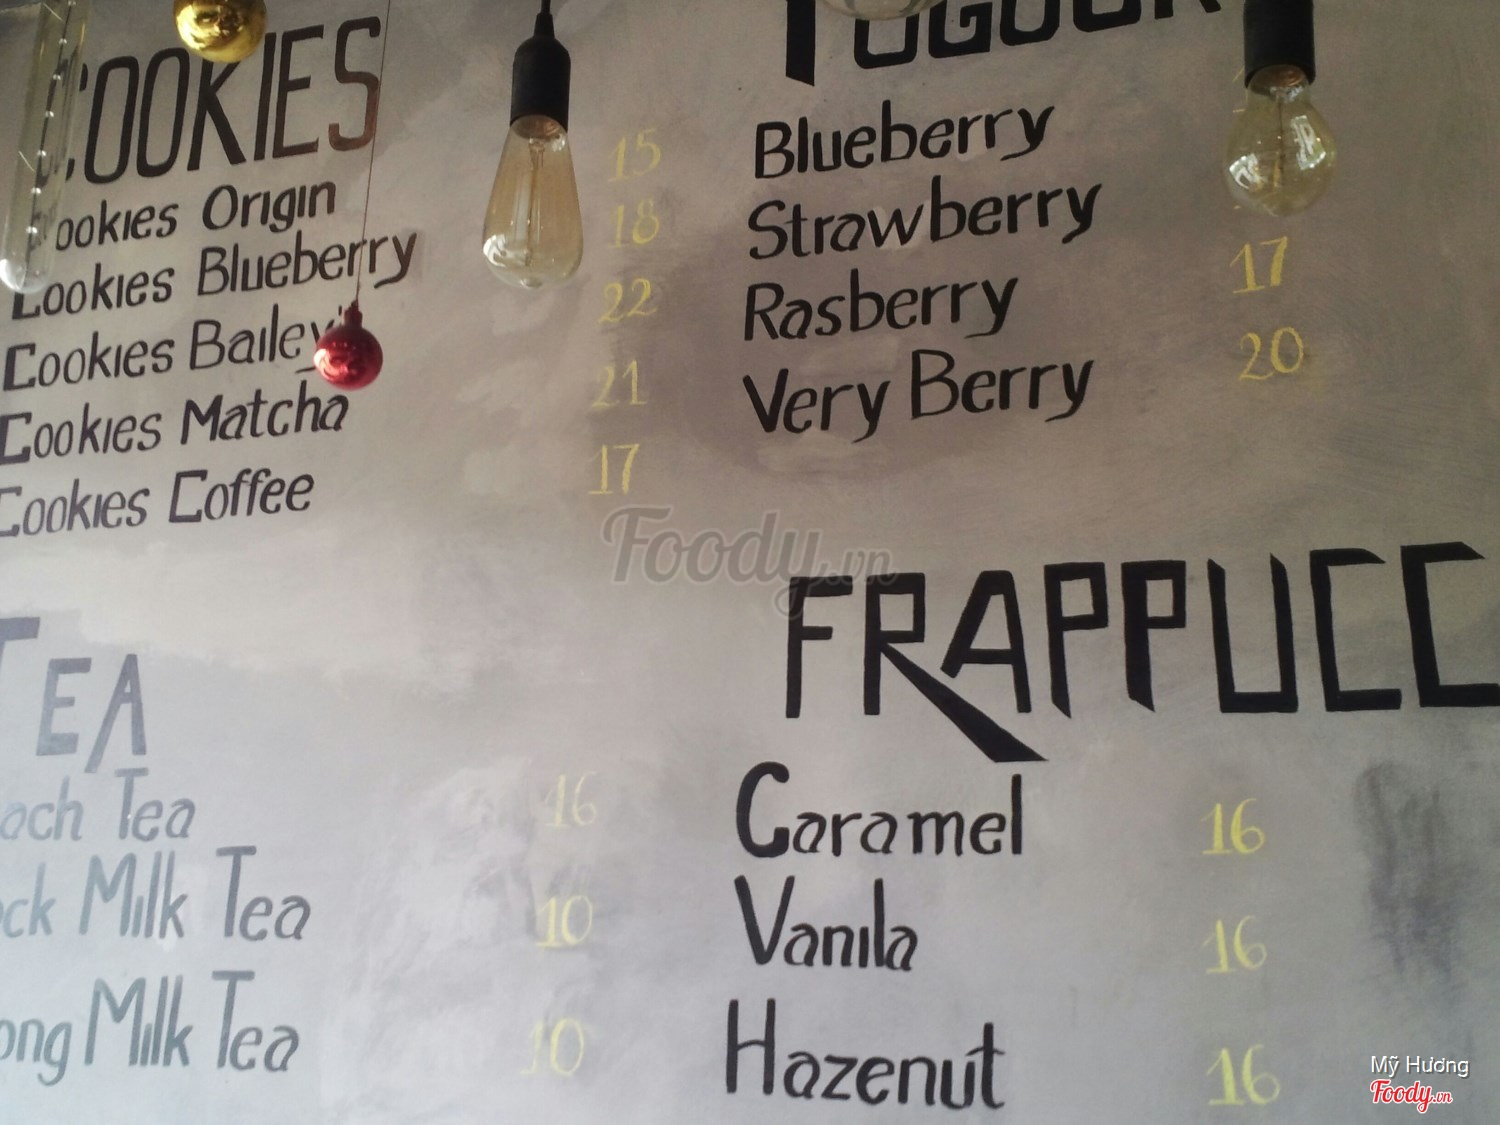 COOKIES
Cookies Origin 15
Cookies Blueberry 18
Cookies Bailey 22
Cookies Matcha 21
Cookies Coffee 17
Blueberry
Strawberry
Rasberry 17
Very Berry 20
TEA
Tea 16
Milk Tea 10
Milk Tea 10
FRAPPUCC
Caramel 16
Vanila 16
Hazenut 16
Foody.vn
Mỹ Hương
Foody.vn